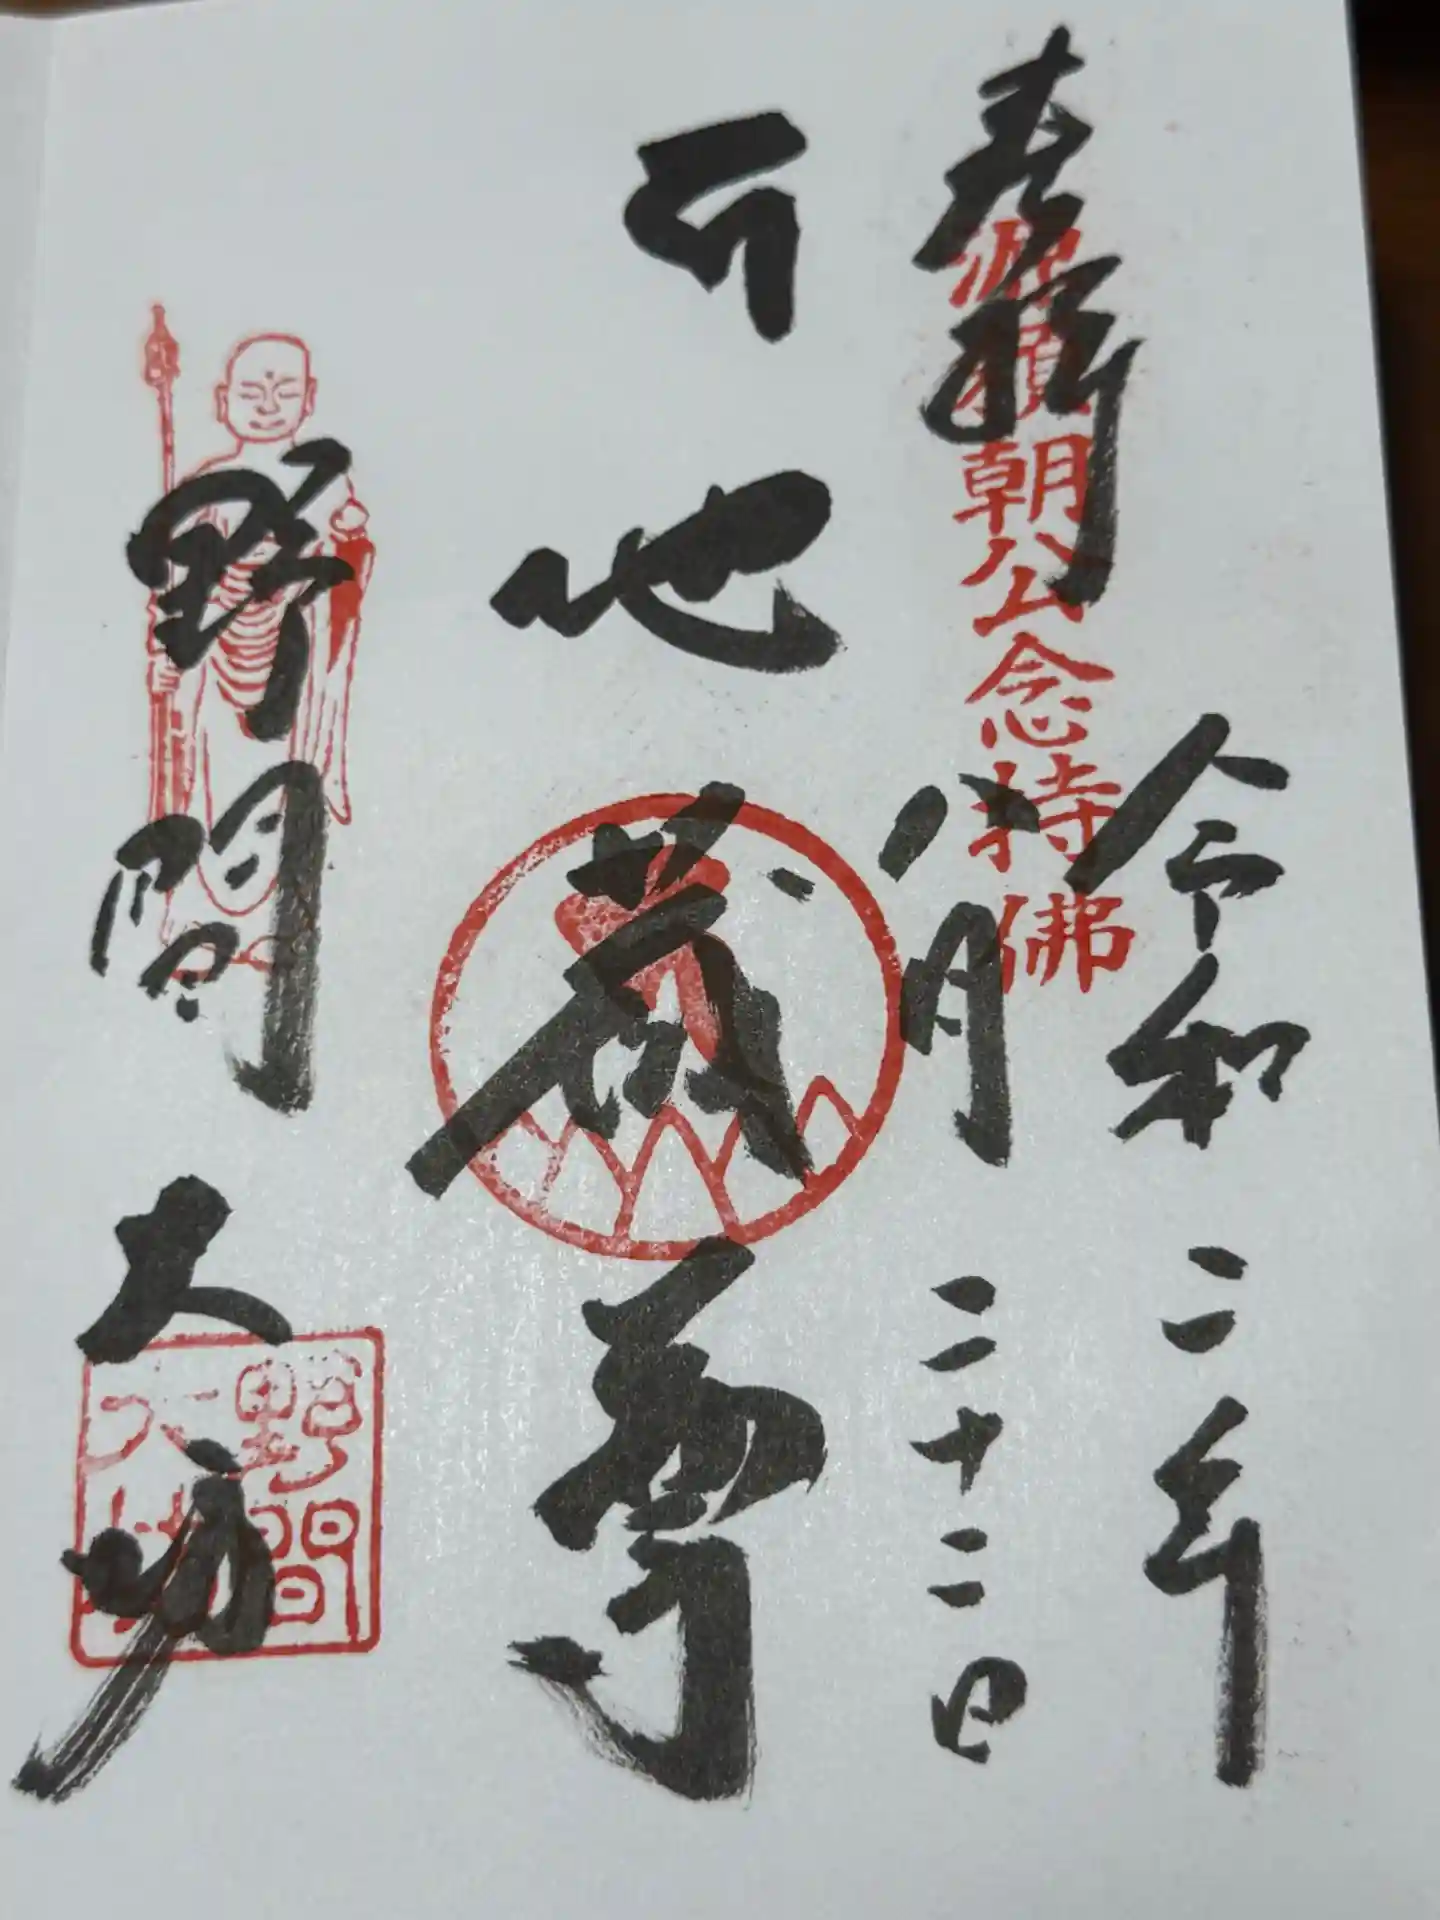 奉拝
源頼朝公念持佛
令和二年
八月二十二日
地蔵尊
野間大坊
野間
大坊